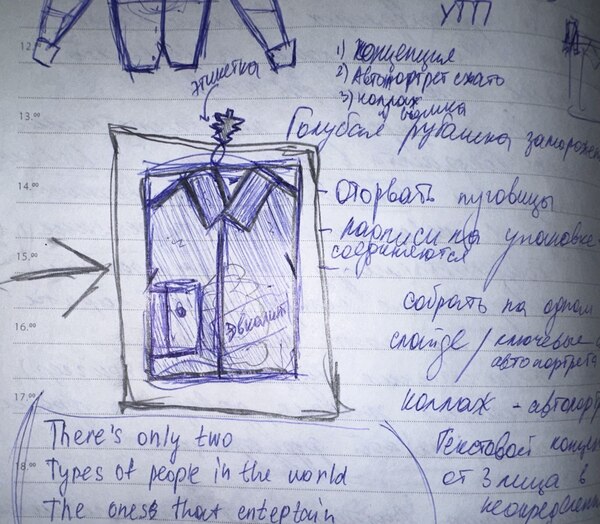 УТП
12
1) концепция
2) Автопортрет сжато
3) коллаж
этикетка
13.00
Голубая рубашка
14.00
- Оторвать пуговицы
- надписи на упаковке
соединяются
15.00
эвкалипт
собрать на одном
16.00
слайде / ключевые
автопортрета
17.00
коллаж -
There's only two
Текстовой
18.00
Types of people in the world
от 3 лица в
The ones that entertain